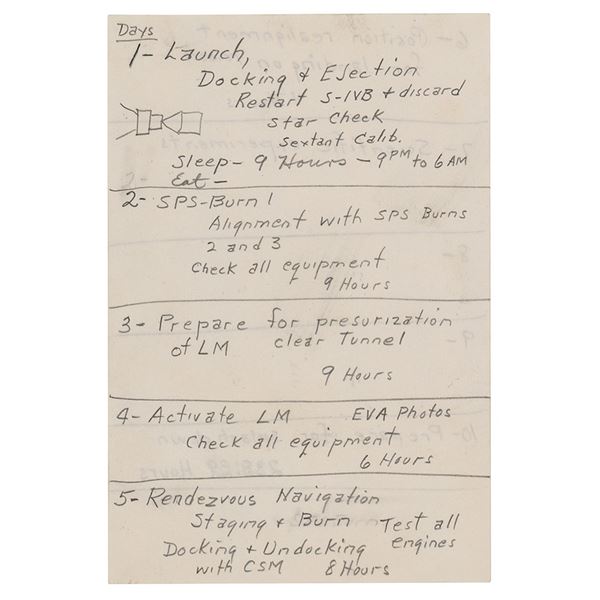 Days
1- Launch,
Docking & Ejection
Restart S-IVB + discard
Star Check
Sextant Calib.
Sleep - 9 Hours - 9PM to 6 AM
Eat -
2- SPS-Burn 1
Alignment with SPS Burns
2 and 3
Check all equipment
9 Hours
3- Prepare for presurization
of LM clear Tunnel
9 Hours
4- Activate LM EVA Photos
Check all equipment
6 Hours
5- Rendezvous Navigation
Staging & Burn Test all
engines
Docking & Undocking
with CSM 8 Hours